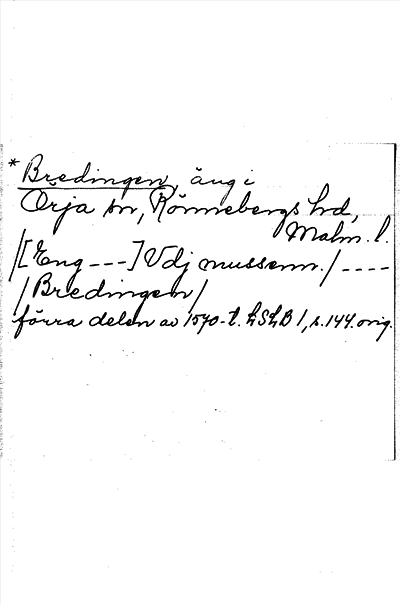 * Bredingen, äng i
Örja sn, Rönnebergs hd,
Malm. l.
/[Eng ---] Vdj mussenn./ ----
/Bredingen/
förra delen av 1570-t. LSLB 1, s. 144. orig.